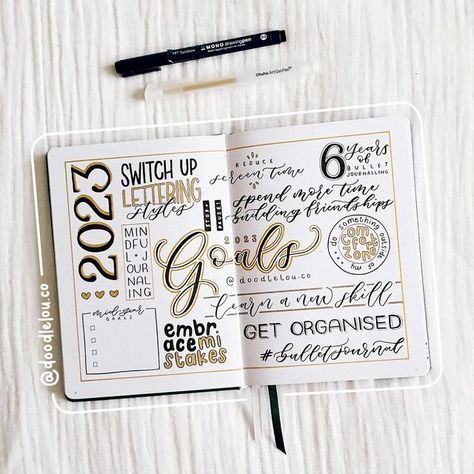 Tombow MONO drawing pen
Ohuhu ArtGel Pen
2023
SWITCH UP
LETTERING
styles
MIN
DFU
L•J
OUR
NAL
ING
mid-year
GOALS
STOP
PAUSE
embr-
ace mi
stakes
REDUCE
screen time
6 Years
of
BULLET
JOURNALLING
spend more time
building friendships
do something outside of my
COM
FORT
ZONE
2023
Goals
@doodlelou.co
learn a new skill
GET ORGANISED
#bulletjournal
@doodlelou.co